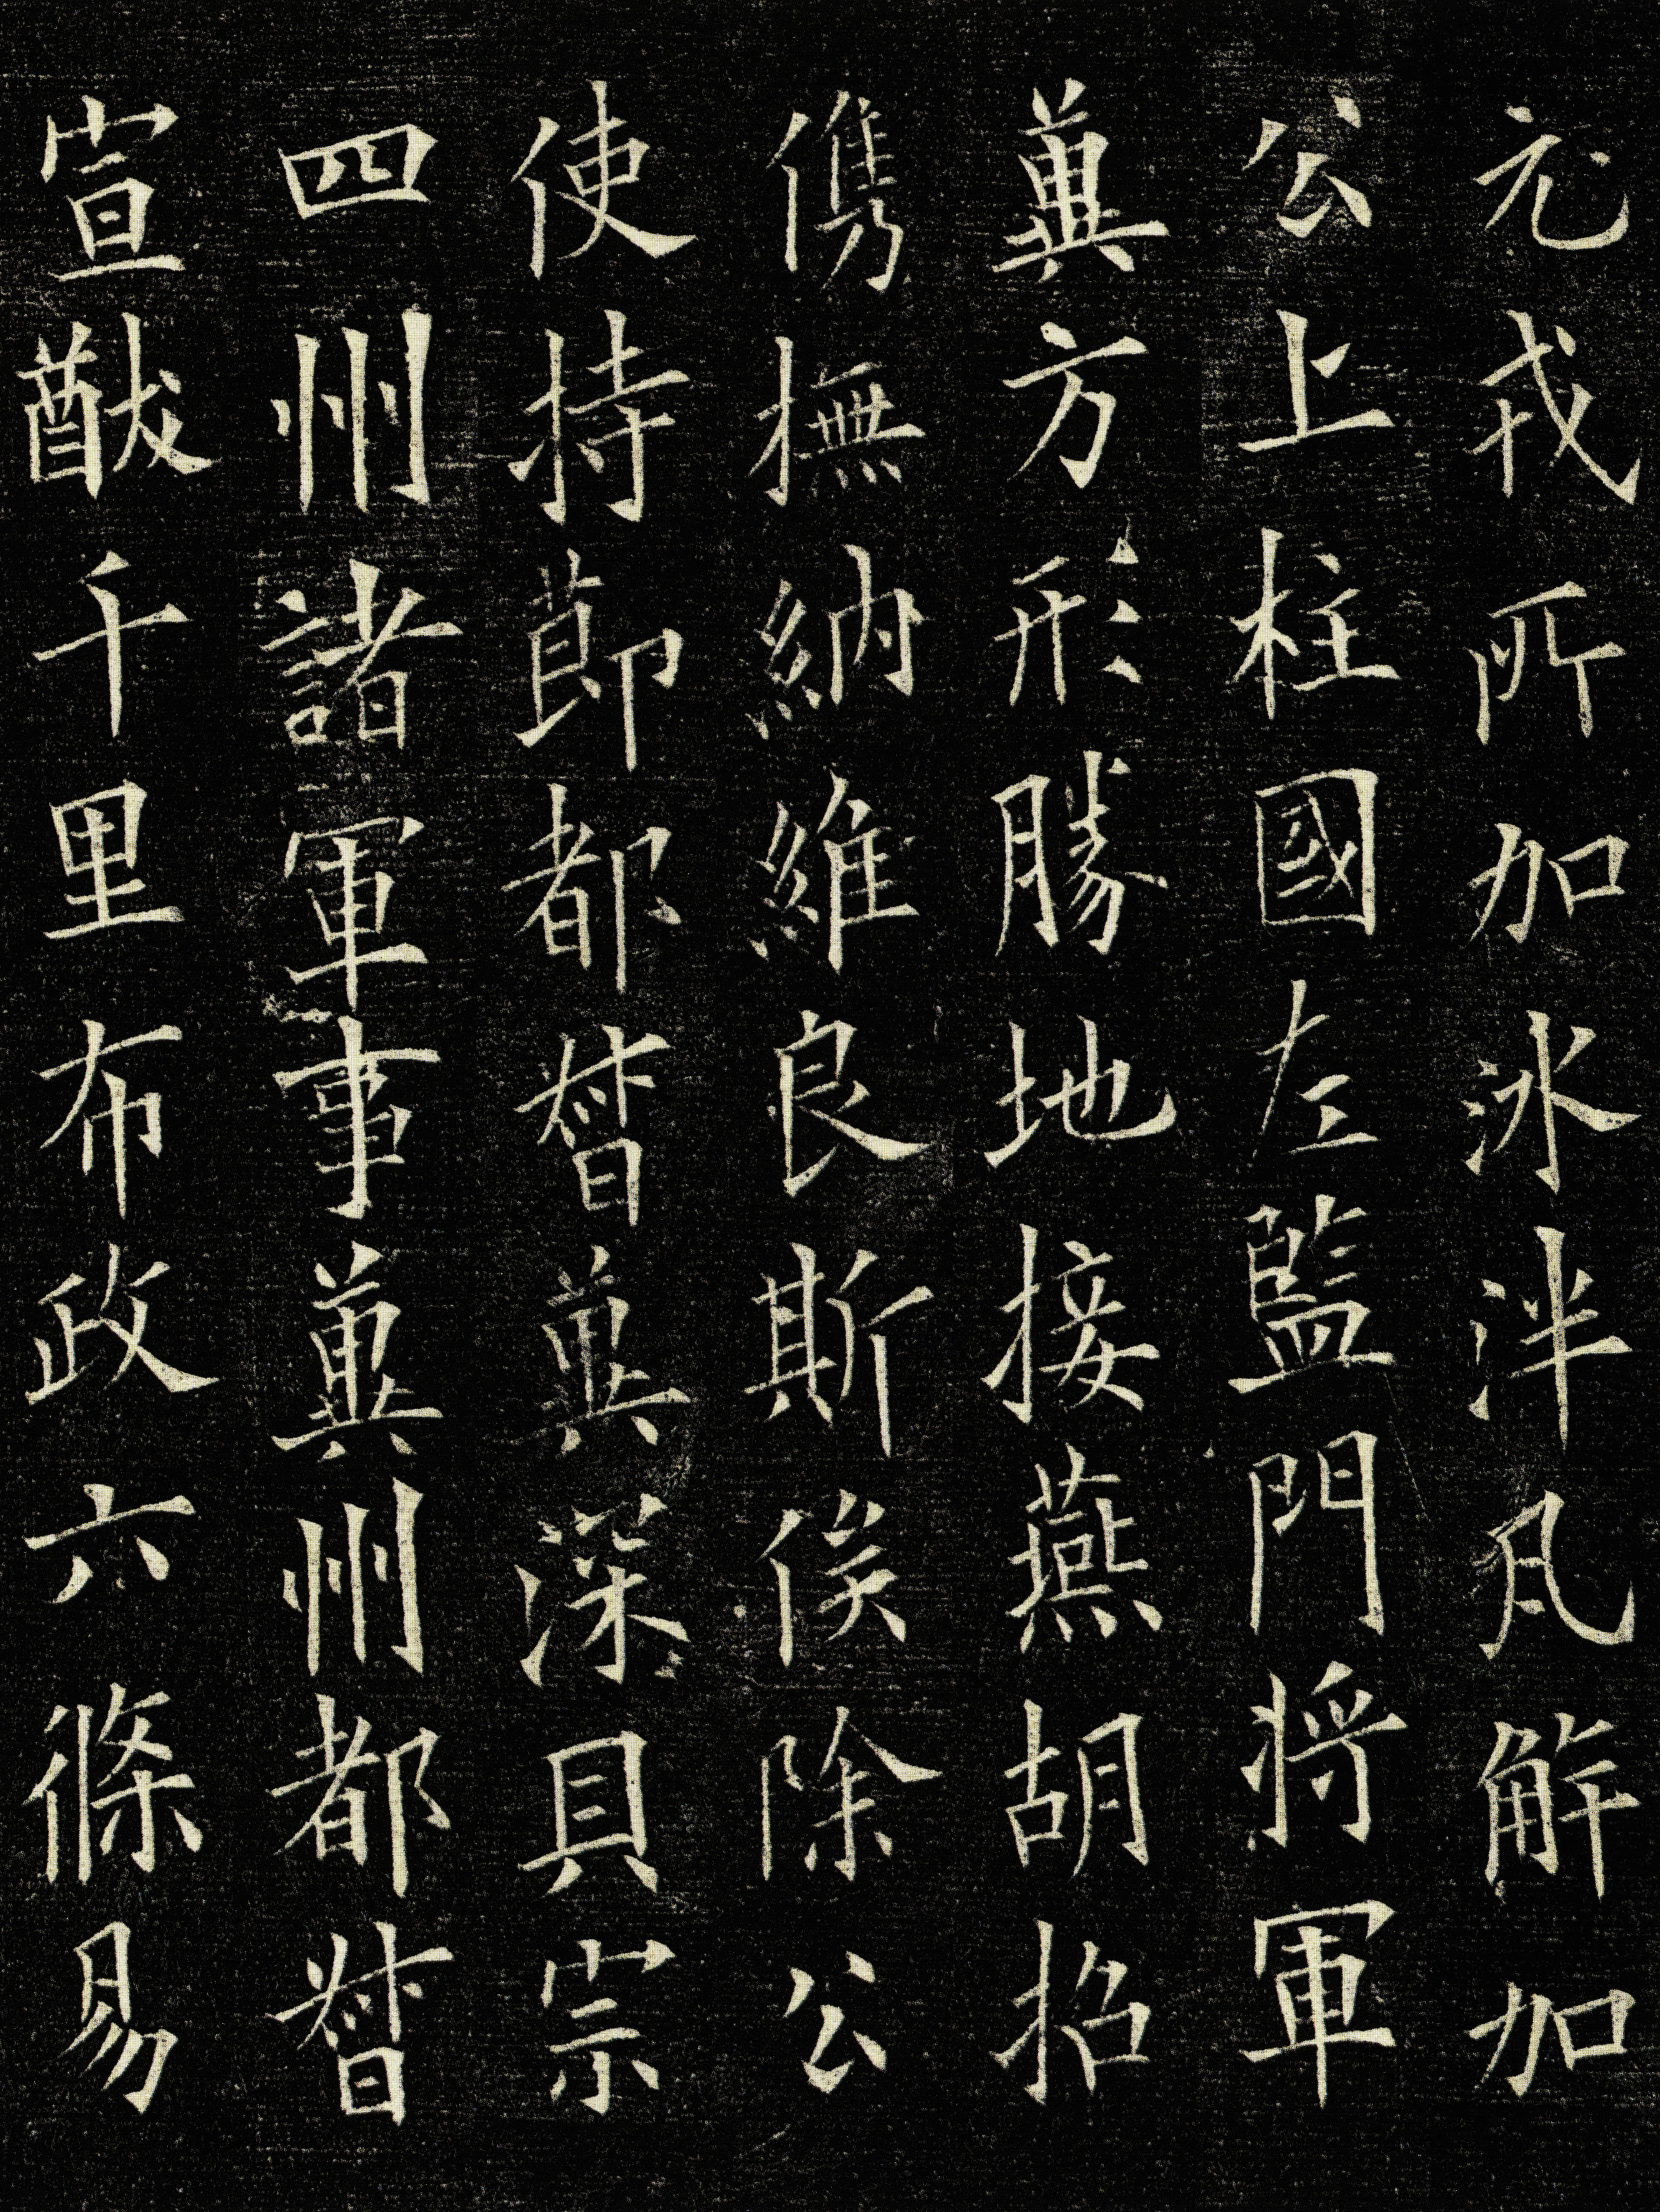 元戎所加冰泮瓦解加
公上柱國左監門將軍
冀方形勝地接燕胡招
㑺撫納維良斯俟除公
使持節都督冀深貝宗
四州諸軍事冀州都督
宣猷千里布政六條易